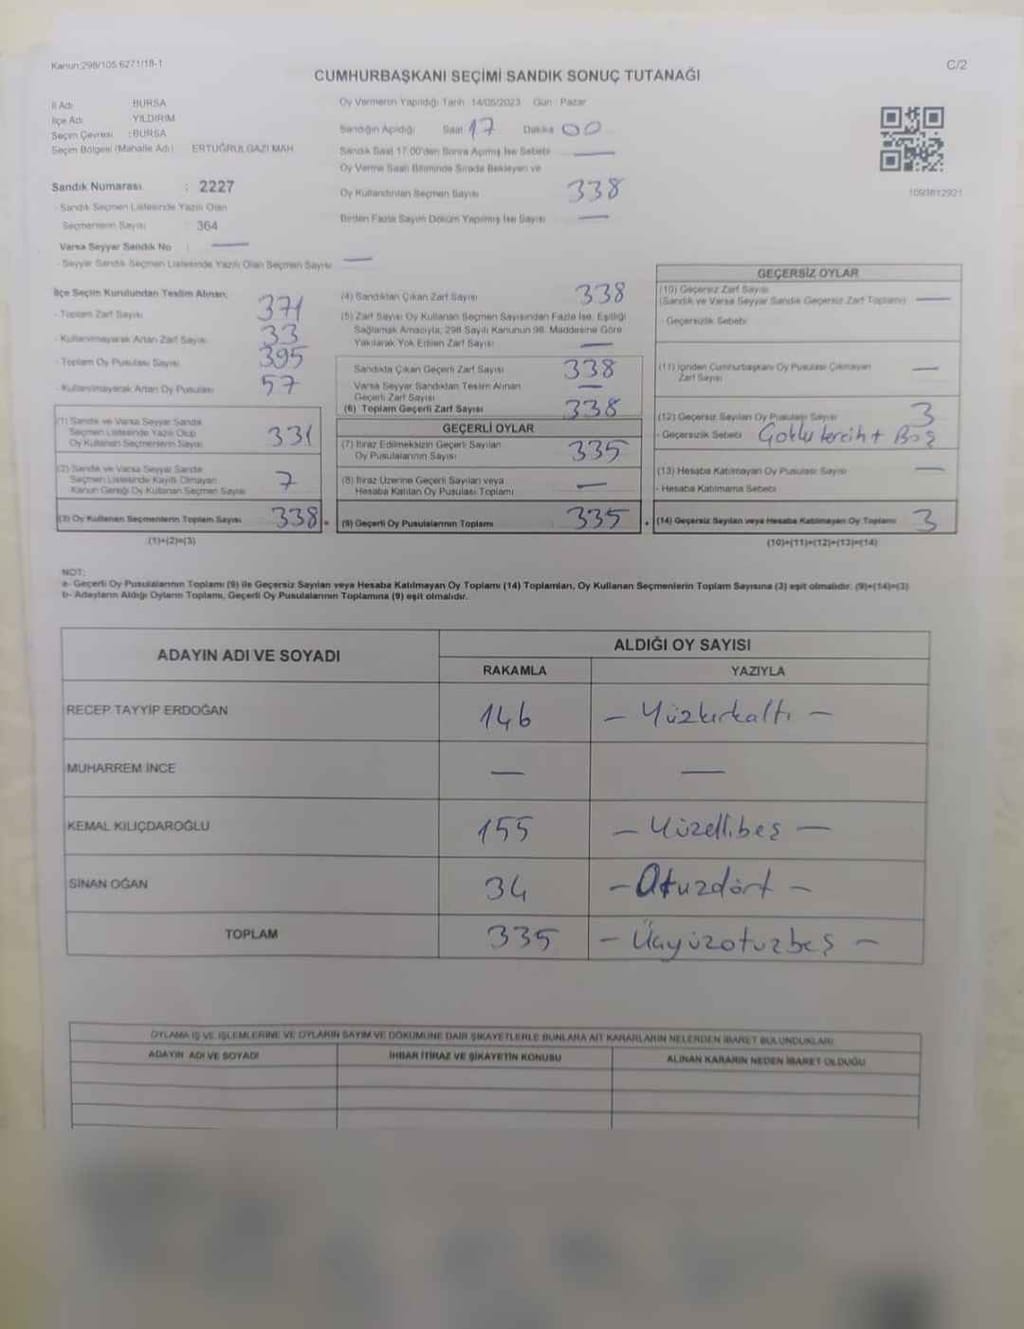 Kanun:298/105 6271/18-1
C/2
CUMHURBAŞKANI SEÇİMİ SANDIK SONUÇ TUTANAĞI
İl Adı BURSA
İlçe Adı YILDIRIM
Seçim Çevresi : BURSA
Seçim Bölgesi (Mahalle Adı) ERTUĞRULGAZİ MAH
Sandık Numarası : 2227
Sandık Seçmen Listesinde Yazılı Olan
Seçmenlerin Sayısı 364
Varsa Seyyar Sandık No : —
Seyyar Sandık Seçmen Listesinde Yazılı Olan Seçmen Sayısı —
Oy Vermenin Yapıldığı Tarih 14/05/2023 Gün : Pazar
Sandığın Açıldığı Saat 17 Dakika 00
Sandık Saat 17.00'den Sonra Açılmış İse Sebebi —
Oy Verme Saati Bitiminde Sırada Bekleyen ve
Oy Kullandırılan Seçmen Sayısı 338
Birden Fazla Sayım Döküm Yapılmış İse Sayısı —
1093812921
İlçe Seçim Kurulundan Teslim Alınan;
- Toplam Zarf Sayısı 371
- Kullanılmayarak Artan Zarf Sayısı 33
- Toplam Oy Pusulası Sayısı 395
- Kullanılmayarak Artan Oy Pusulası 57
(1) Sandık ve Varsa Seyyar Sandık
Seçmen Listesinde Yazılı Olup
Oy Kullanan Seçmenlerin Sayısı 331
(2) Sandık ve Varsa Seyyar Sandık
Seçmen Listesinde Kayıtlı Olmayan
Kanun Gereği Oy Kullanan Seçmen Sayısı 7
(3) Oy Kullanan Seçmenlerin Toplam Sayısı 338
(1)+(2)=(3)
(4) Sandıktan Çıkan Zarf Sayısı 338
(5) Zarf Sayısı Oy Kullanan Seçmen Sayısından Fazla İse, Eşitliği
Sağlamak Amacıyla, 298 Sayılı Kanunun 98. Maddesine Göre
Yakılarak Yok Edilen Zarf Sayısı —
Sandıkta Çıkan Geçerli Zarf Sayısı 338
Varsa Seyyar Sandıktan Teslim Alınan
Geçerli Zarf Sayısı —
(6) Toplam Geçerli Zarf Sayısı 338
GEÇERLİ OYLAR
(7) İtiraz Edilmeksizin Geçerli Sayılan
Oy Pusulalarının Sayısı 335
(8) İtiraz Üzerine Geçerli Sayılan veya
Hesaba Katılan Oy Pusulası Toplamı —
(9) Geçerli Oy Pusulalarının Toplamı 335
GEÇERSİZ OYLAR
(10) Geçersiz Zarf Sayısı
(Sandık ve Varsa Seyyar Sandık Geçersiz Zarf Toplamı) —
- Geçersizlik Sebebi
(11) İçinden Cumhurbaşkanı Oy Pusulası Çıkmayan
Zarf Sayısı —
(12) Geçersiz Sayılan Oy Pusulası Sayısı 3
- Geçersizlik Sebebi Çoklu tercih + Boş
(13) Hesaba Katılmayan Oy Pusulası Sayısı —
- Hesaba Katılmama Sebebi
(14) Geçersiz Sayılan veya Hesaba Katılmayan Oy Toplamı 3
(10)+(11)+(12)+(13)=(14)
NOT:
a- Geçerli Oy Pusulalarının Toplamı (9) ile Geçersiz Sayılan veya Hesaba Katılmayan Oy Toplamı (14) Toplamları, Oy Kullanan Seçmenlerin Toplam Sayısına (3) eşit olmalıdır. (9)+(14)=(3)
b- Adayların Aldığı Oyların Toplamı, Geçerli Oy Pusulalarının Toplamına (9) eşit olmalıdır.
ADAYIN ADI VE SOYADI
ALDIĞI OY SAYISI
RAKAMLA YAZIYLA
RECEP TAYYİP ERDOĞAN 146 — Yüzkırkaltı —
MUHARREM İNCE — —
KEMAL KILIÇDAROĞLU 155 — Yüzellibeş —
SİNAN OĞAN 34 — Otuzdört —
TOPLAM 335 — Üçyüzotuzbeş —
OYLAMA İŞ VE İŞLEMLERİNE VE OYLARIN SAYIM VE DÖKÜMÜNE DAİR ŞİKAYETLERLE BUNLARA AİT KARARLARIN NELERDEN İBARET BULUNDUKLARI
ADAYIN ADI VE SOYADI İHBAR İTİRAZ VE ŞİKAYETİN KONUSU ALINAN KARARIN NEDEN İBARET OLDUĞU